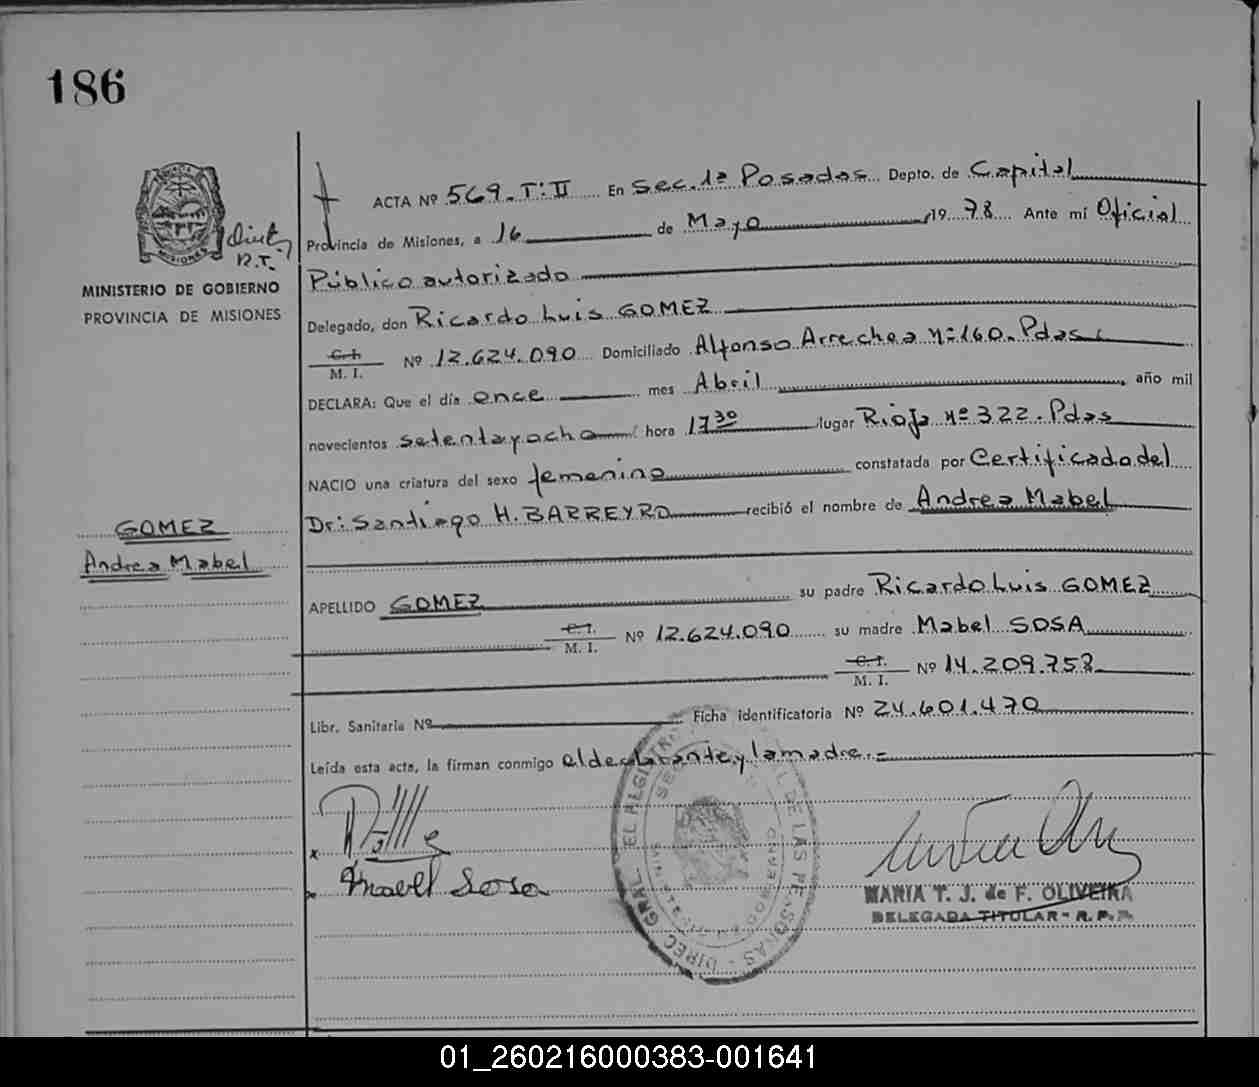 186
ACTA Nº 569. T: II En Sec. 1ª Posadas Depto. de Capital
Provincia de Misiones, a 16 de Mayo 1978 Ante mí Oficial
Público autorizado
MINISTERIO DE GOBIERNO
PROVINCIA DE MISIONES
Delegado, don Ricardo Luis GOMEZ
C. I. M. I. Nº 12.624.090 Domiciliado Alfonso Arrechea nº 160. Pdas
DECLARA: Que el día once mes Abril, año mil
novecientos setenta y ocho hora 17 30 lugar Rioja nº 322. Pdas
NACIO una criatura del sexo femenino constatada por Certificado del
Dr: Santiago H. BARREYRO recibió el nombre de Andrea Mabel
GOMEZ
Andrea Mabel
APELLIDO GOMEZ su padre Ricardo Luis GOMEZ
C. I. M. I. Nº 12.624.090 su madre Mabel SOSA
C. I. M. I. Nº 14.209.753
Libr. Sanitaria Nº Ficha identificatoria Nº 24.601.470
Leída esta acta, la firman conmigo el declarante y la madre.=
Mabel Sosa
MARIA T. J. de F. OLIVEIRA
DELEGADA TITULAR - R. P. P.
01_260216000383-001641